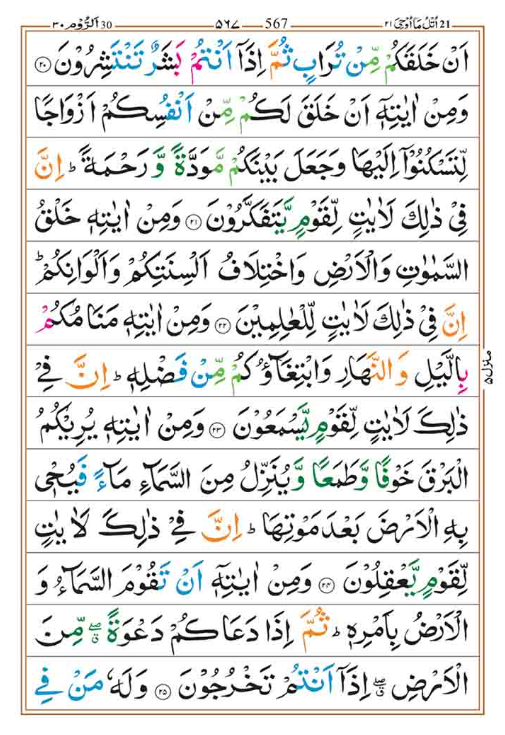 اَلرُّوْم ٣٠ 30 ٥٦٧ 567 اُتْلُ مَاۤ اُوْحِيَ ٢١ 21
اَنْ خَلَقَكُمْ مِّنْ تُرَابٍ ثُمَّ اِذَاۤ اَنْتُمْ بَشَرٌ تَنْتَشِرُوْنَ ﴿۲۰﴾
وَمِنْ اٰيٰتِهٖۤ اَنْ خَلَقَ لَكُمْ مِّنْ اَنْفُسِكُمْ اَزْوَاجًا
لِّتَسْكُنُوْۤا اِلَيْهَا وَجَعَلَ بَيْنَكُمْ مَّوَدَّةً وَّرَحْمَةً ؕ اِنَّ
فِيْ ذٰلِكَ لَاٰيٰتٍ لِّقَوْمٍ يَّتَفَكَّرُوْنَ ﴿۲۱﴾ وَمِنْ اٰيٰتِهٖ خَلْقُ
السَّمٰوٰتِ وَالْاَرْضِ وَاخْتِلَافُ اَلْسِنَتِكُمْ وَاَلْوَانِكُمْ ؕ
اِنَّ فِيْ ذٰلِكَ لَاٰيٰتٍ لِّلْعٰلِمِيْنَ ﴿۲۲﴾ وَمِنْ اٰيٰتِهٖ مَنَامُكُمْ
بِالَّيْلِ وَالنَّهَارِ وَابْتِغَآؤُكُمْ مِّنْ فَضْلِهٖ ؕ اِنَّ فِيْ
ذٰلِكَ لَاٰيٰتٍ لِّقَوْمٍ يَّسْمَعُوْنَ ﴿۲۳﴾ وَمِنْ اٰيٰتِهٖ يُرِيْكُمُ
الْبَرْقَ خَوْفًا وَّطَمَعًا وَّيُنَزِّلُ مِنَ السَّمَآءِ مَآءً فَيُحْيٖ
بِهِ الْاَرْضَ بَعْدَ مَوْتِهَا ؕ اِنَّ فِيْ ذٰلِكَ لَاٰيٰتٍ
لِّقَوْمٍ يَّعْقِلُوْنَ ﴿۲۴﴾ وَمِنْ اٰيٰتِهٖۤ اَنْ تَقُوْمَ السَّمَآءُ وَ
الْاَرْضُ بِاَمْرِهٖ ؕ ثُمَّ اِذَا دَعَاكُمْ دَعْوَةً ۖۗ مِّنَ
الْاَرْضِ ۖۗ اِذَاۤ اَنْتُمْ تَخْرُجُوْنَ ﴿۲۵﴾ وَلَهٗ مَنْ فِي
منزل ٥